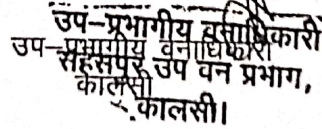 उप-प्रभागीय वनाधिकारी
उप-प्रभागीय वनाधिकारी
सहसपुर उप वन प्रभाग,
कालसी
कालसी।